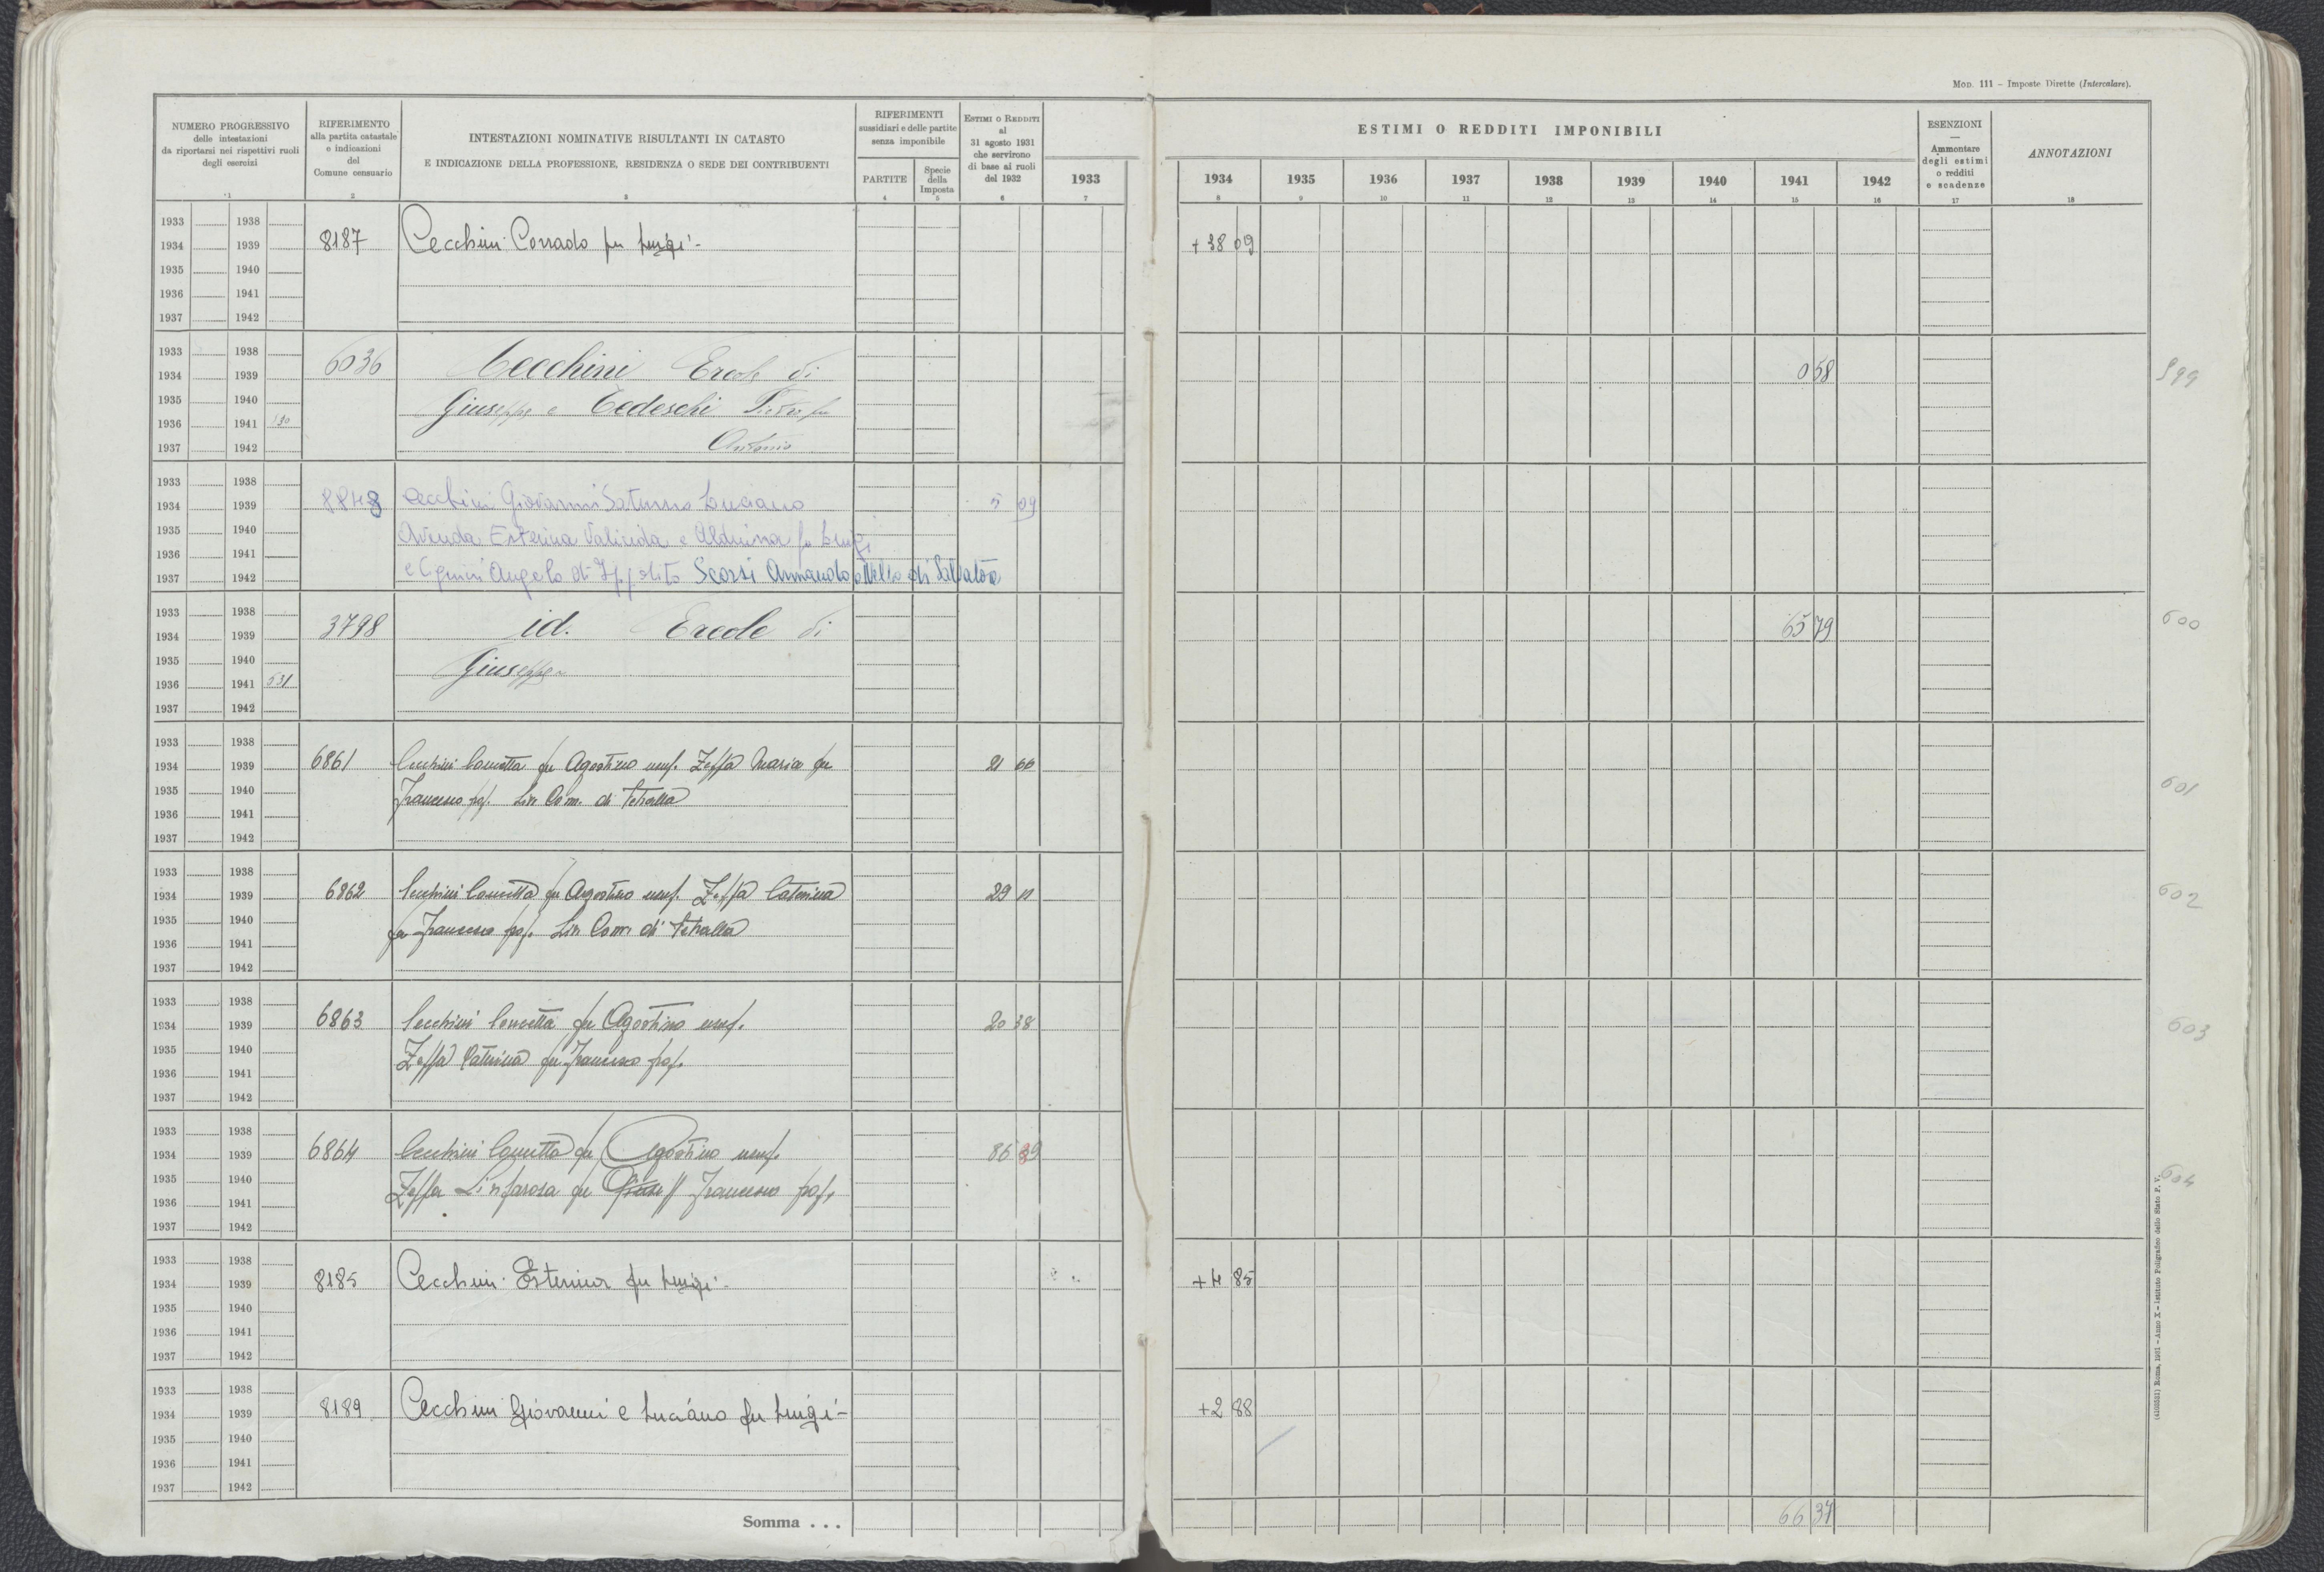 Mod. 111 – Imposte Dirette (Intercalare).
NUMERO PROGRESSIVO
delle intestazioni
da riportarsi nei rispettivi ruoli
degli esercizi
1
RIFERIMENTO
alla partita catastale
e indicazioni
del
Comune censuario
2
INTESTAZIONI NOMINATIVE RISULTANTI IN CATASTO
E INDICAZIONE DELLA PROFESSIONE, RESIDENZA O SEDE DEI CONTRIBUENTI
3
RIFERIMENTI
sussidiari e delle partite
senza imponibile
PARTITE
4
Specie
della
Imposta
5
Estimi o Redditi
al
31 agosto 1931
che servirono
di base ai ruoli
del 1932
6
1933
7
ESTIMI O REDDITI IMPONIBILI
1934 1935 1936 1937 1938 1939 1940 1941 1942
8 9 10 11 12 13 14 15 16
ESENZIONI
—
Ammontare
degli estimi
o redditi
e scadenze
17
ANNOTAZIONI
18
1933 1938
1934 1939 8187 Cecchini Corrado fu Luigi - + 38 09
1935 1940
1936 1941
1937 1942
1933 1938 6036 Cecchini Ercole di 0 58 599
1934 1939
1935 1940 Giuseppe e Tedeschi Pietro fu
1936 1941 530
1937 1942 Antonio
1933 1938
1934 1939 8848 Cecchini Giovanni Saturno Luciano 5 09
1935 1940 Esterina Valinda e Aldvina fu Luigi
1936 1941
1937 1942 e Cignini Angelo di Ippolito Scorsi Armando o Nello di Salvatore
1933 1938
1934 1939 3798 id. Ercole di 65 79 600
1935 1940 Giuseppe
1936 1941 531
1937 1942
1933 1938
1934 1939 6861 Cecchini Concetta fu Agostino usuf. Zeppa Maria fu 21 66
1935 1940 Francesco prop. Liv. Com. di Vetralla 601
1936 1941
1937 1942
1933 1938
1934 1939 6862 Cecchini Concetta fu Agostino usuf. Zeppa Caterina 29 11 602
1935 1940 fu Francesco prop. Liv. Com. di Vetralla
1936 1941
1937 1942
1933 1938
1934 1939 6863 Cecchini Concetta fu Agostino usuf. 20 38 603
1935 1940 Zeppa Caterina fu Francesco prop.
1936 1941
1937 1942
1933 1938
1934 1939 6864 Cecchini Concetta fu Agostino usuf. 86 39
1935 1940 Zeppa Sinforosa fu Francesco prop. 604
1936 1941
1937 1942
1933 1938
1934 1939 8185 Cecchini Esterina fu Luigi - + 4 85
1935 1940
1936 1941
1937 1942
1933 1938
1934 1939 8189 Cecchini Giovanni e Luciano fu Luigi - + 2 88
1935 1940
1936 1941
1937 1942
Somma . . . 66 37
Roma, 1931 – Anno X – Istituto Poligrafico dello Stato P. V.